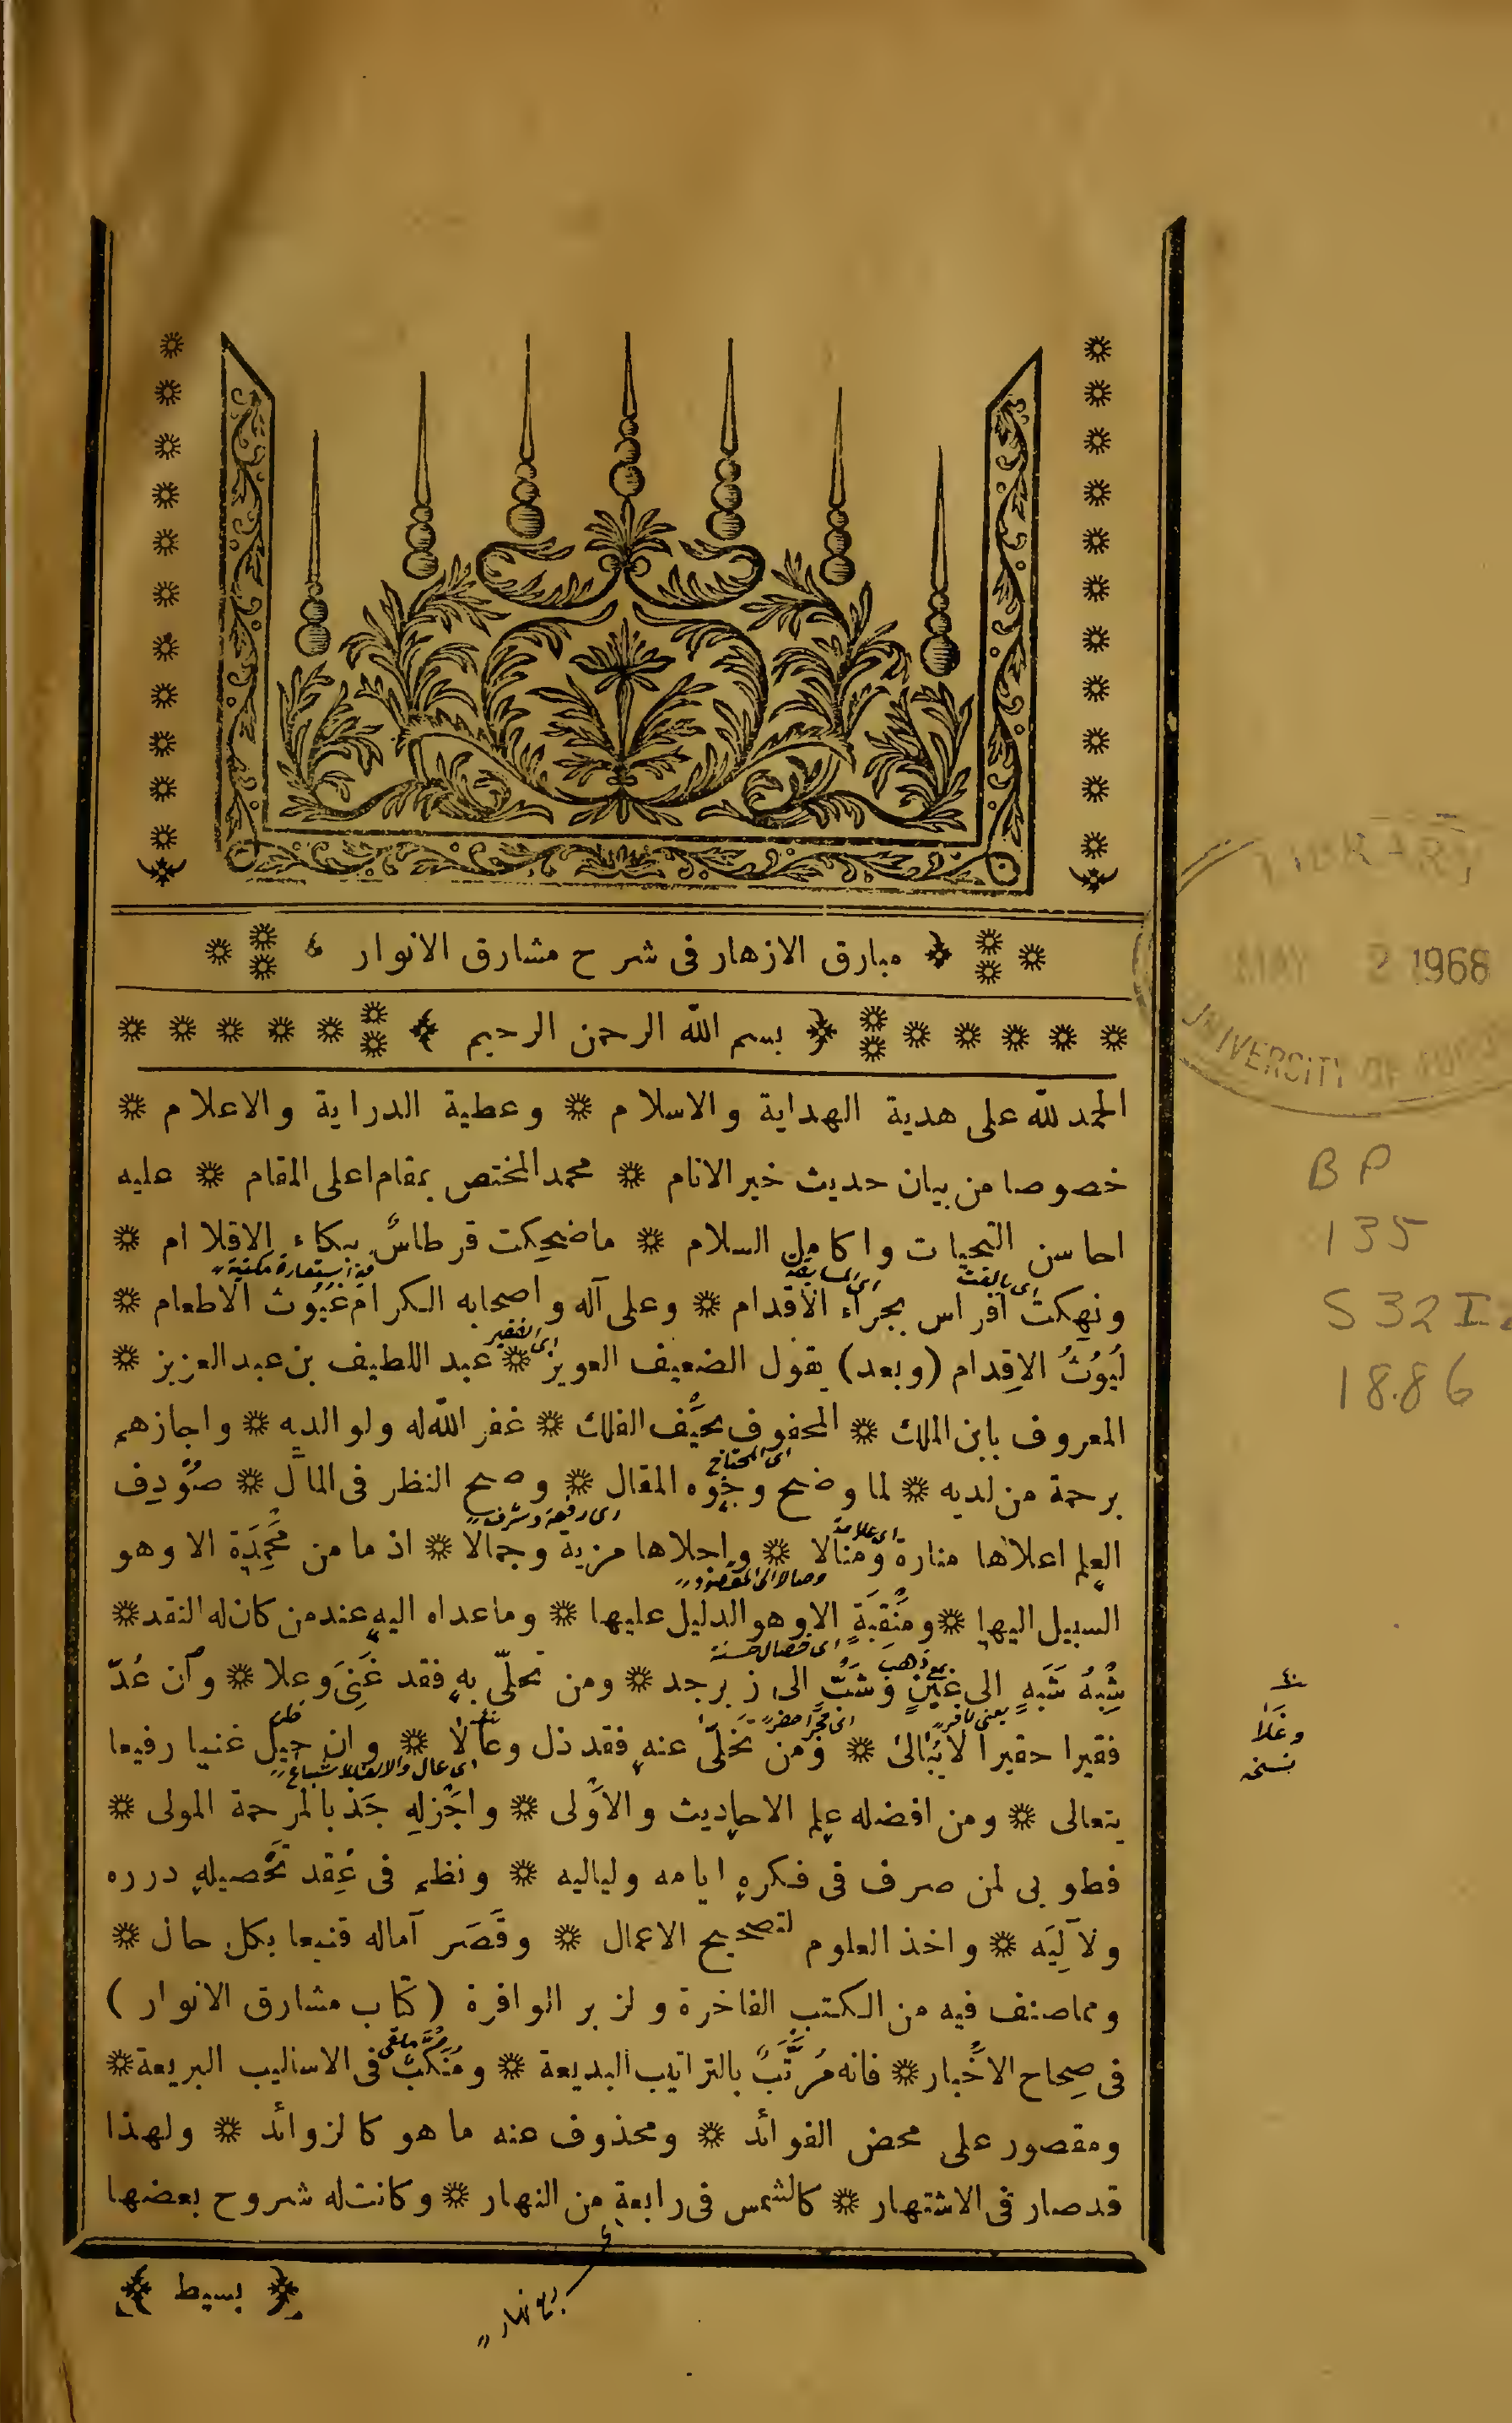 مبارق الازهار فى شرح مشارق الانوار
بسم الله الرحمن الرحيم
الحمد لله على هدية الهداية والاسلام ❋ وعطية الدراية والاعلام ❋
خصوصا من بيان حديث خير الانام ❋ محمد المختص بمقام اعلى المقام ❋ عليه
احاسن التحيات واكامل السلام ❋ ماضحِكت قرطاسٌ ببكاء الاقلام ❋
ونهكت افراس بجراء الاقدام ❋ وعلى آله واصحابه الكرام غُيُوث الاطعام ❋
لُيُوثُ الاِقدام (وبعد) يقول الضعيف العويز ❋ عبد اللطيف بن عبد العزيز ❋
المعروف بابن الملك ❋ المحفوف بحيّف الفلك ❋ غفر الله له ولوالديه ❋ واجازهم
برحمة من لديه ❋ لما وضح وجوه المقال ❋ وصح النظر فى المآل ❋ صُوْدِف
العلم اعلاها منارة ومنالا ❋ واحلاها مزية وجمالا ❋ اذ ما من مَحْمِدَة الا وهو
السبيل اليها ❋ ومَنْقِبَةٍ الا وهو الدليل عليها ❋ وماعداه اليه عند من كان له النقد ❋
شِبْهُ شَبَهٍ الى عَيْنٍ وشَبٍّ الى زبرجد ❋ ومن تحلّى به فقد غَنِىَ وعلا ❋ وان عُدّ
فقيرا حقيرا لايُبالىٰ ❋ ومن تَخَلّى عنه فقد ذل وعالا ❋ وان خِيْل غنيا رفيعا
يتعالى ❋ ومن افضله علم الاحاديث والاَوْلى ❋ واجْزلِهِ جَذْبا لمرحمة المولى ❋
فطوبى لمن صرف فى فكره ايامه ولياليه ❋ ونظم فى عِقد تَحْصيله درره
ولآلِيَه ❋ واخذ العلوم لتصحيح الاعمال ❋ وقَصَر آماله قنيعا بكل حال ❋
ومما صنف فيه من الكتب الفاخرة ولزبر الوافرة (كتاب مشارق الانوار)
فى صِحاح الاخْبار ❋ فانه مُرَتَّبٌ بالتراتيب البديعة ❋ ومُنَكَّتٌ فى الاساليب البريعة ❋
ومقصور على محض الفوائد ❋ ومحذوف عنه ما هو كالزوائد ❋ ولهذا
قدصار فى الاشتهار ❋ كالشمس فى رابعة من النهار ❋ وكانت له شروح بعضها
بسيط
وعَلَا
نسخه
ربع نهار
LIBRARY
MAY 2 1968
UNIVERSITY OF
BP
135
S32I
1886